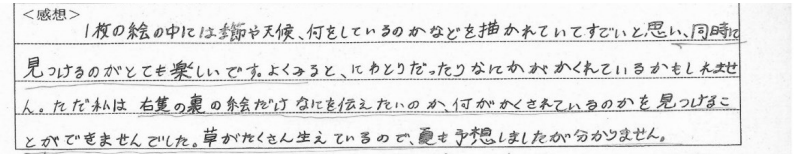 <感想>
1枚の絵の中には季節や天候、何をしているのかなどを描かれていてすごいと思い、同時に
見つけるのがとても楽しいです。よくみると、にわとりだったりなにかがかくれているかもしれませ
ん。ただ私は右隻の裏の絵だけなにを伝えたいのか、何がかくされているのかを見つけるこ
とができませんでした。草がたくさん生えているので、夏も予想しましたが分かりません。